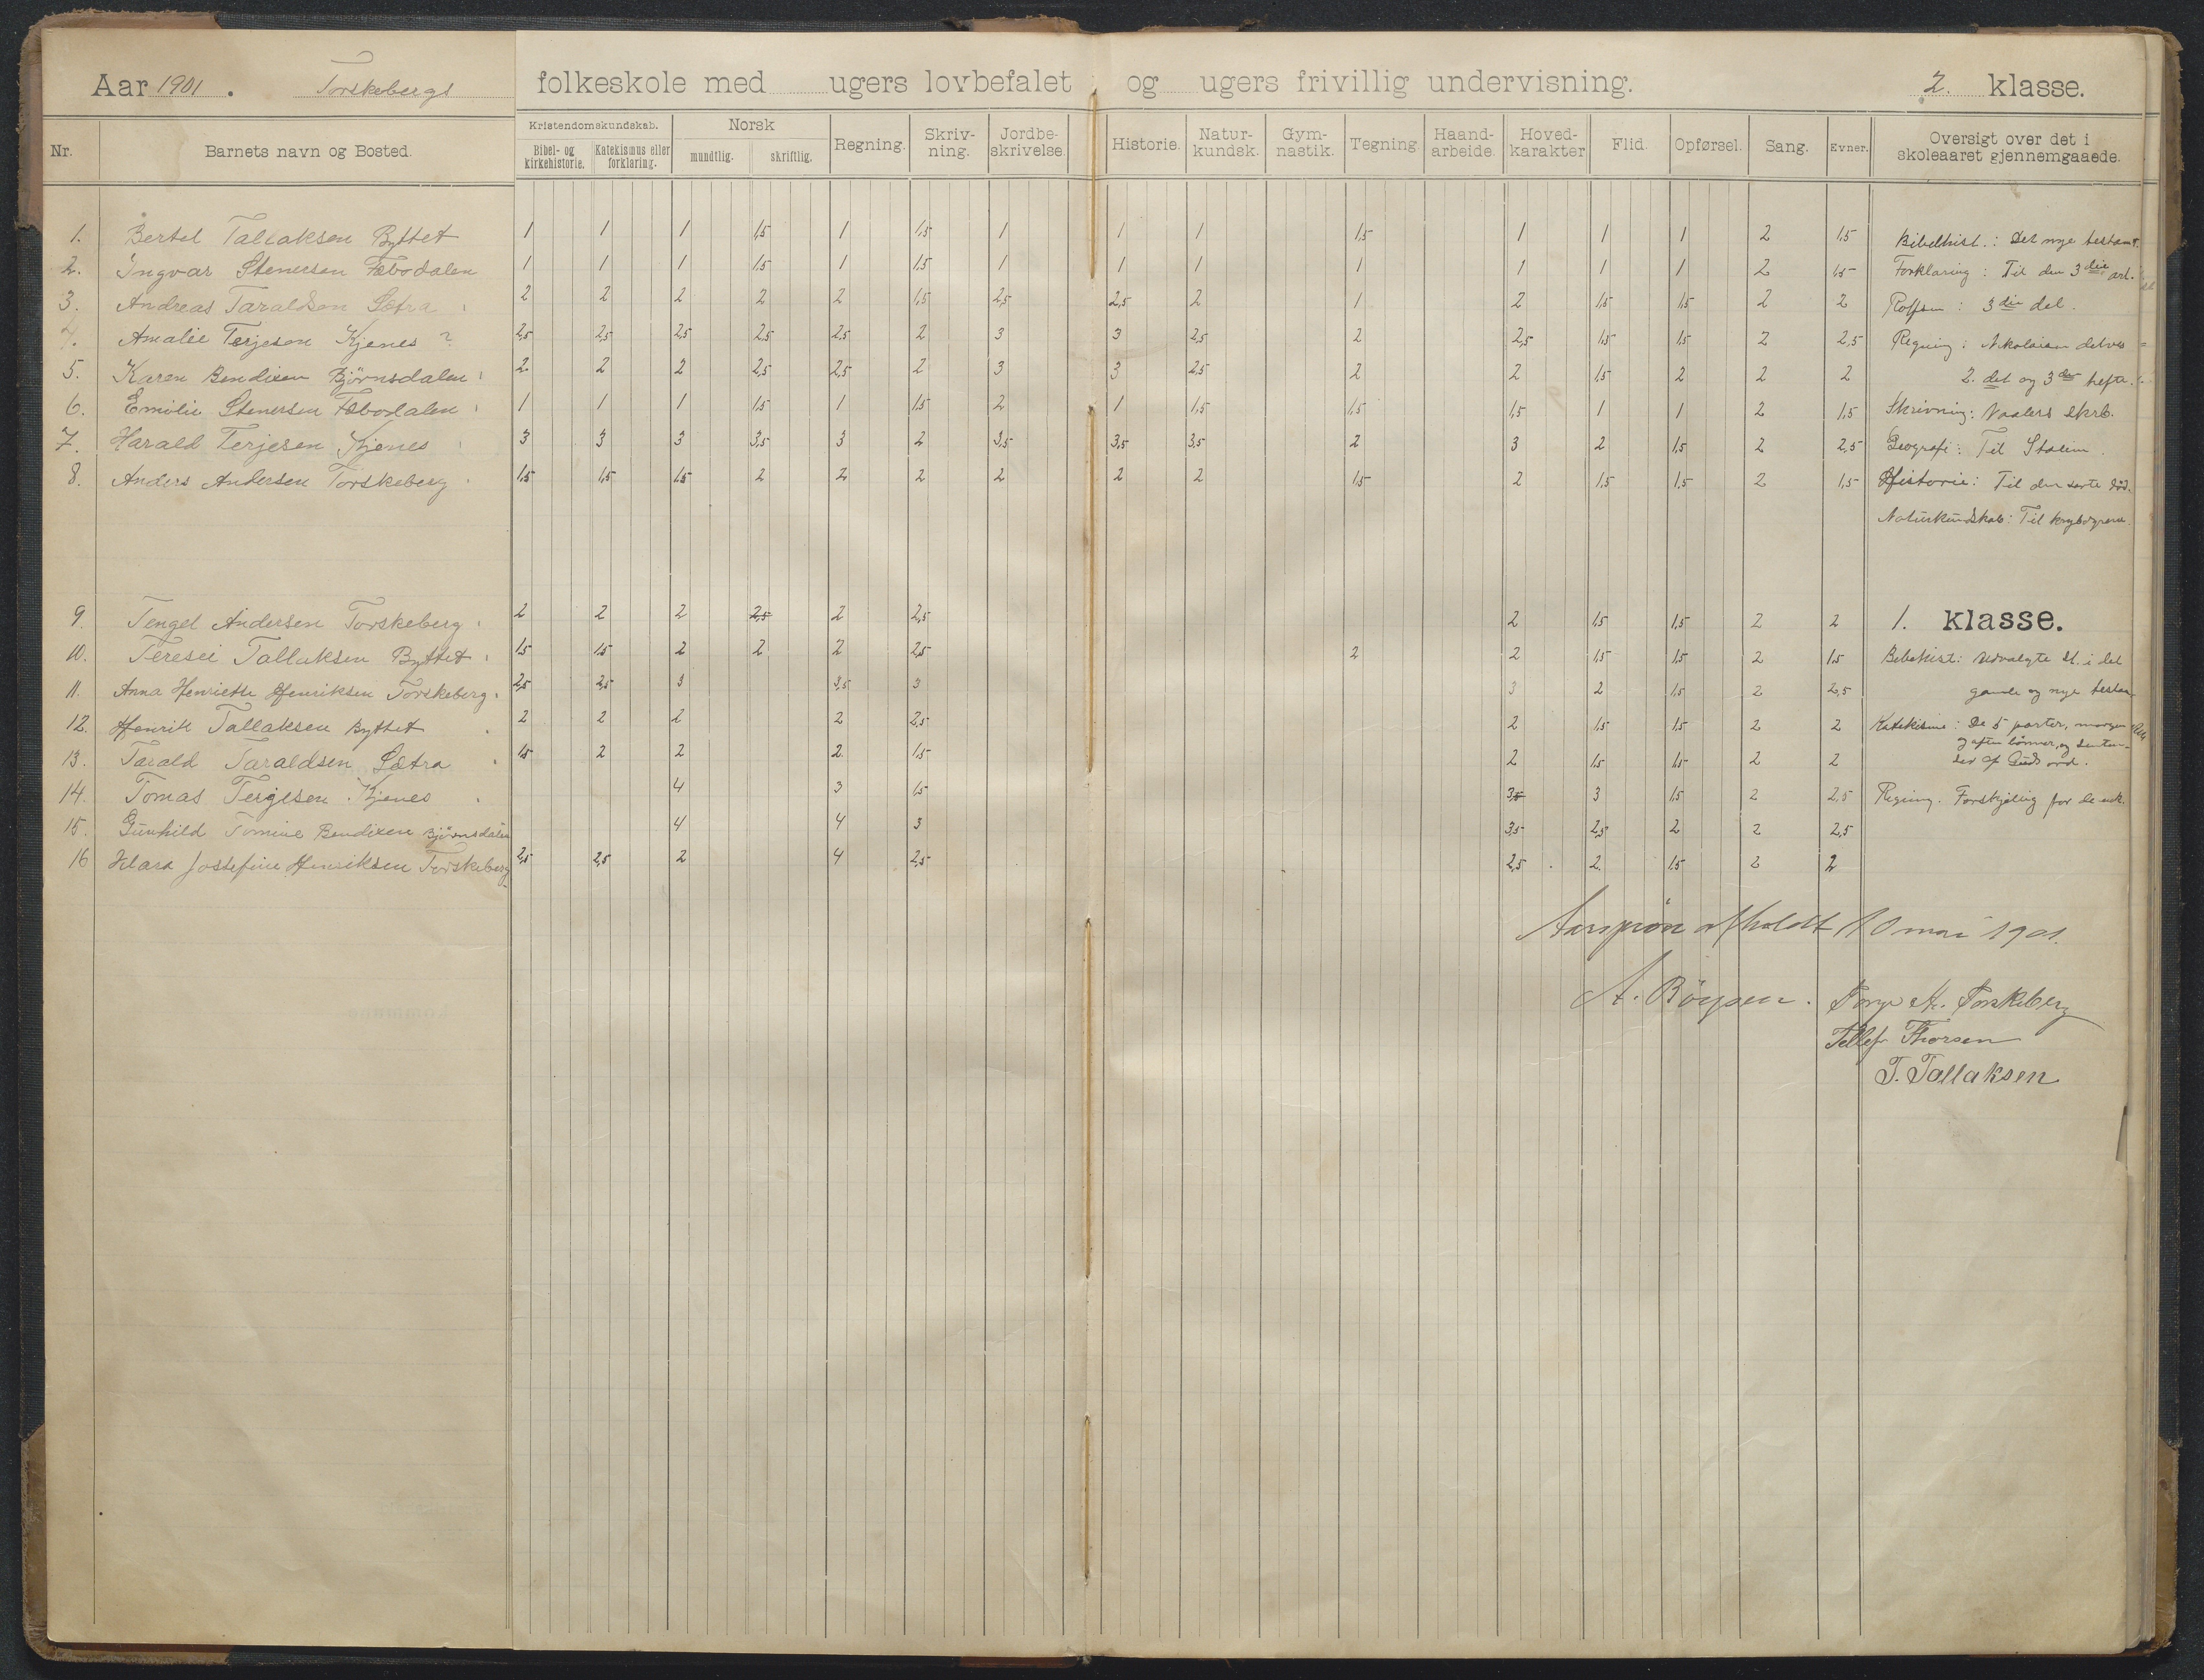 Aar 1901. Torskebergs folkeskole med ugers lovbefalet og ugers frivillig undervisning. 2. klasse.
Nr. Barnets navn og Bosted. Kristendomskundskab. Bibel- og kirkehistorie. Katekismus eller forklaring. Norsk mundtlig. skriftlig. Regning. Skriv-ning. Jordbe-skrivelse. Historie. Natur-kundsk. Gym-nastik. Tegning. Haand-arbeide. Hoved-karakter Flid. Opførsel. Sang. Evner. Oversigt over det i skoleaaret gjennemgaaede.
1. Bertel Tallaksen Byttet 1 1 1 1,5 1 1,5 1 1 1 1,5 1 1 1 2 1,5 Bibelhist.: Det nye testam.
2. Ingvar Stenersen Fæbodalen 1 1 1 1,5 1 1,5 1 1 1 1 1 1 1 2 1,5 Forklaring: Til den 3die art.
3. Andreas Taraldsen Sætra 2 2 2 2 2 1,5 2,5 2,5 2 1 2 1,5 1,5 2 2 Rolfsen: 3die del.
4. Amalie Terjesen Kjenes ? 2,5 2,5 2,5 2,5 2,5 2 3 3 2,5 2 2,5 1,5 1,5 2 2,5 Regning: Nikolaisen
5. Karen Bendixen Bjørnsdalen 2 2 2 2,5 2,5 2 3 3 2,5 2 2 1,5 2 2 2 2. det og 3die hefte.
6. Emilie Stenersen Fæbodalen 1 1 1 1,5 1 1,5 2 1 1,5 1,5 1,5 1 1 2 1,5 Skrivning: Naalers skrb.
7. Harald Terjesen Kjenes 3 3 3 3,5 3 2 3,5 3,5 3,5 2 3 2 1,5 2 2,5 Geografi: Til Italien.
8. Anders Andersen Torskeberg 1,5 1,5 1,5 2 2 2 2 2 2 1,5 2 1,5 1,5 2 1,5 Historie: Til den sorte død.
Naturkundskab: Til krybdyrene.
9. Tengel Andersen Torskeberg 2 2 2 2,5 2 2,5 2 1,5 1,5 2 2 1. klasse.
10. Teresie Tallaksen Byttet 1,5 1,5 2 2 2 2,5 2 2 1,5 1,5 2 1,5 Bibelhist: Udvalgte st. i det
11. Anna Henriette Henriksen Torskeberg 2,5 2,5 3 3,5 3 3 2 1,5 2 2,5 gamle og nye testam.
12. Henrik Tallaksen Byttet 2 2 2 2 2,5 2 1,5 1,5 2 2 Katekisme: De 5 parter, morgen
og aften bønner, og
13. Tarald Taraldsen Sætra 1,5 2 2 2 1,5 2 1,5 1,5 2 2 af Guds ord.
14. Tomas Terjesen Kjenes 4 3 1,5 3,5 3 1,5 2 2,5 Regning. Forskjellig for de enk.
15. Gunhild Tomine Bendixen Bjørnsdalen 4 4 3 3,5 2,5 2 2 2,5
16 Klara Jossefine Henriksen Torskeberg 2,5 2,5 2 4 2,5 2,5 2. 1,5 2 2
Aarsprøve afholdt 10 mai 1901.
A. Börgsen. Torge A. Torskeberg
Tellef Thorsen
T. Tallaksen